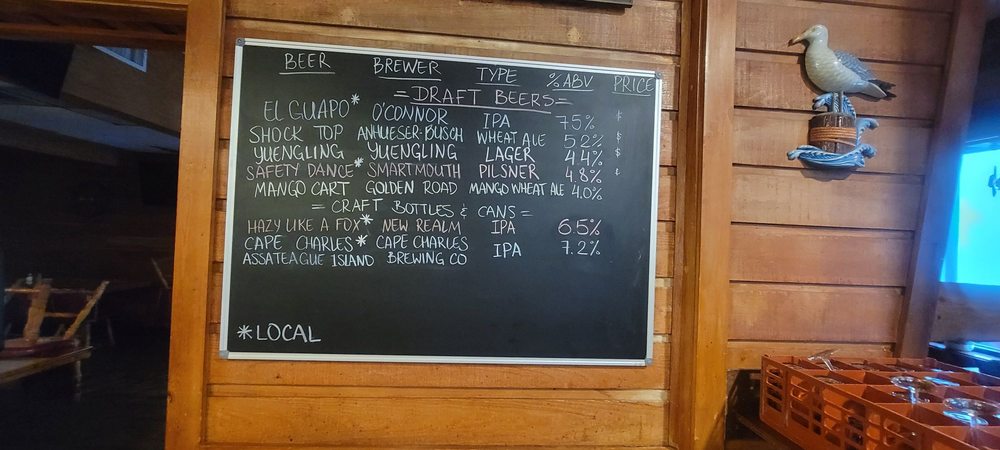 BEER BREWER TYPE % ABV PRICE
= DRAFT BEERS =
EL GUAPO* O'CONNOR IPA 7.5%
SHOCK TOP ANHUESER-BUSCH WHEAT ALE 5.2% $
YUENGLING YUENGLING LAGER 4.4% $
SAFETY DANCE* SMARTMOUTH PILSNER 4.8%
MANGO CART GOLDEN ROAD MANGO WHEAT ALE 4.0%
= CRAFT BOTTLES & CANS =
HAZY LIKE A FOX* NEW REALM IPA 6.5%
CAPE CHARLES* CAPE CHARLES IPA 7.2%
ASSATEAGUE ISLAND BREWING CO
*LOCAL